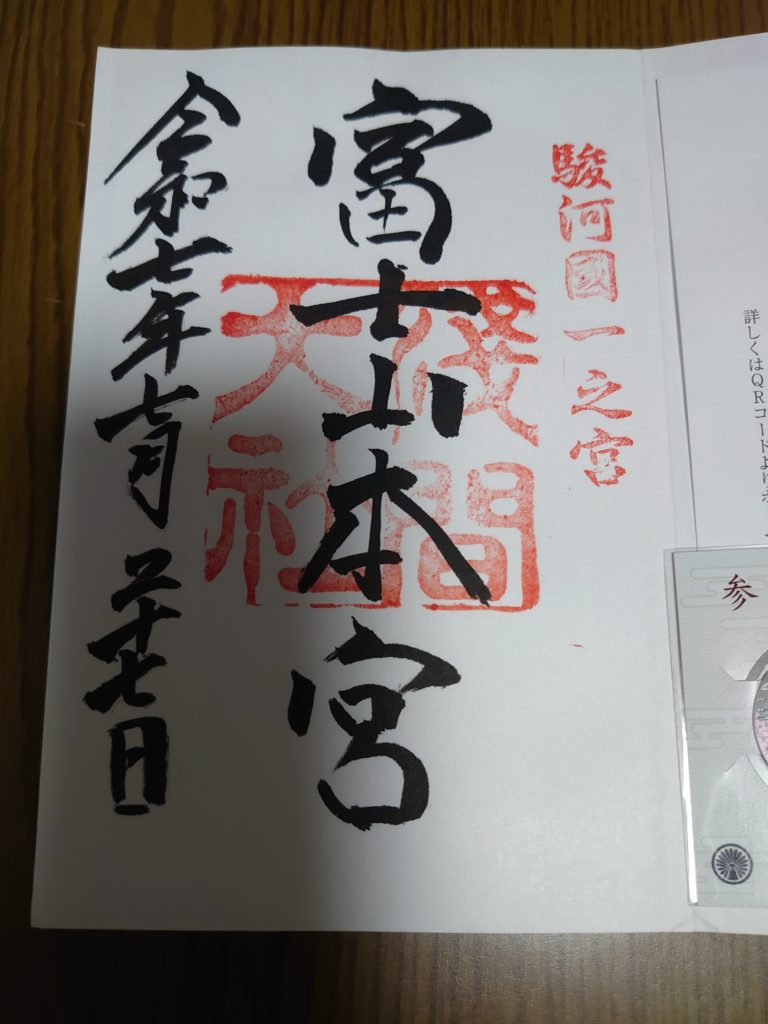 詳しくはQRコードより
参
駿河國一之宮
富士山本宮
淺間
大社
令和七年七月二十七日